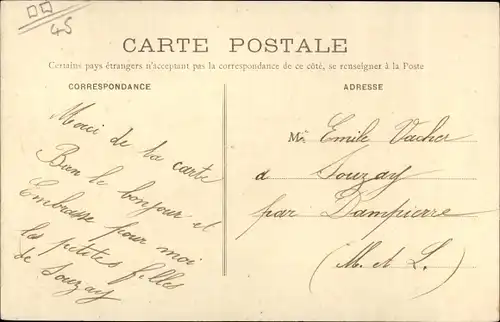 45
CARTE POSTALE
Certains pays étrangers n'acceptant pas la correspondance de ce côté, se renseigner à la Poste
CORRESPONDANCE
Merci de ta carte
Bien le bonjour et
Embrasse pour moi
les petites filles
de Souzay
ADRESSE
M. Emile Vacher
a Souzay
par Dampierre
(M. et L.)